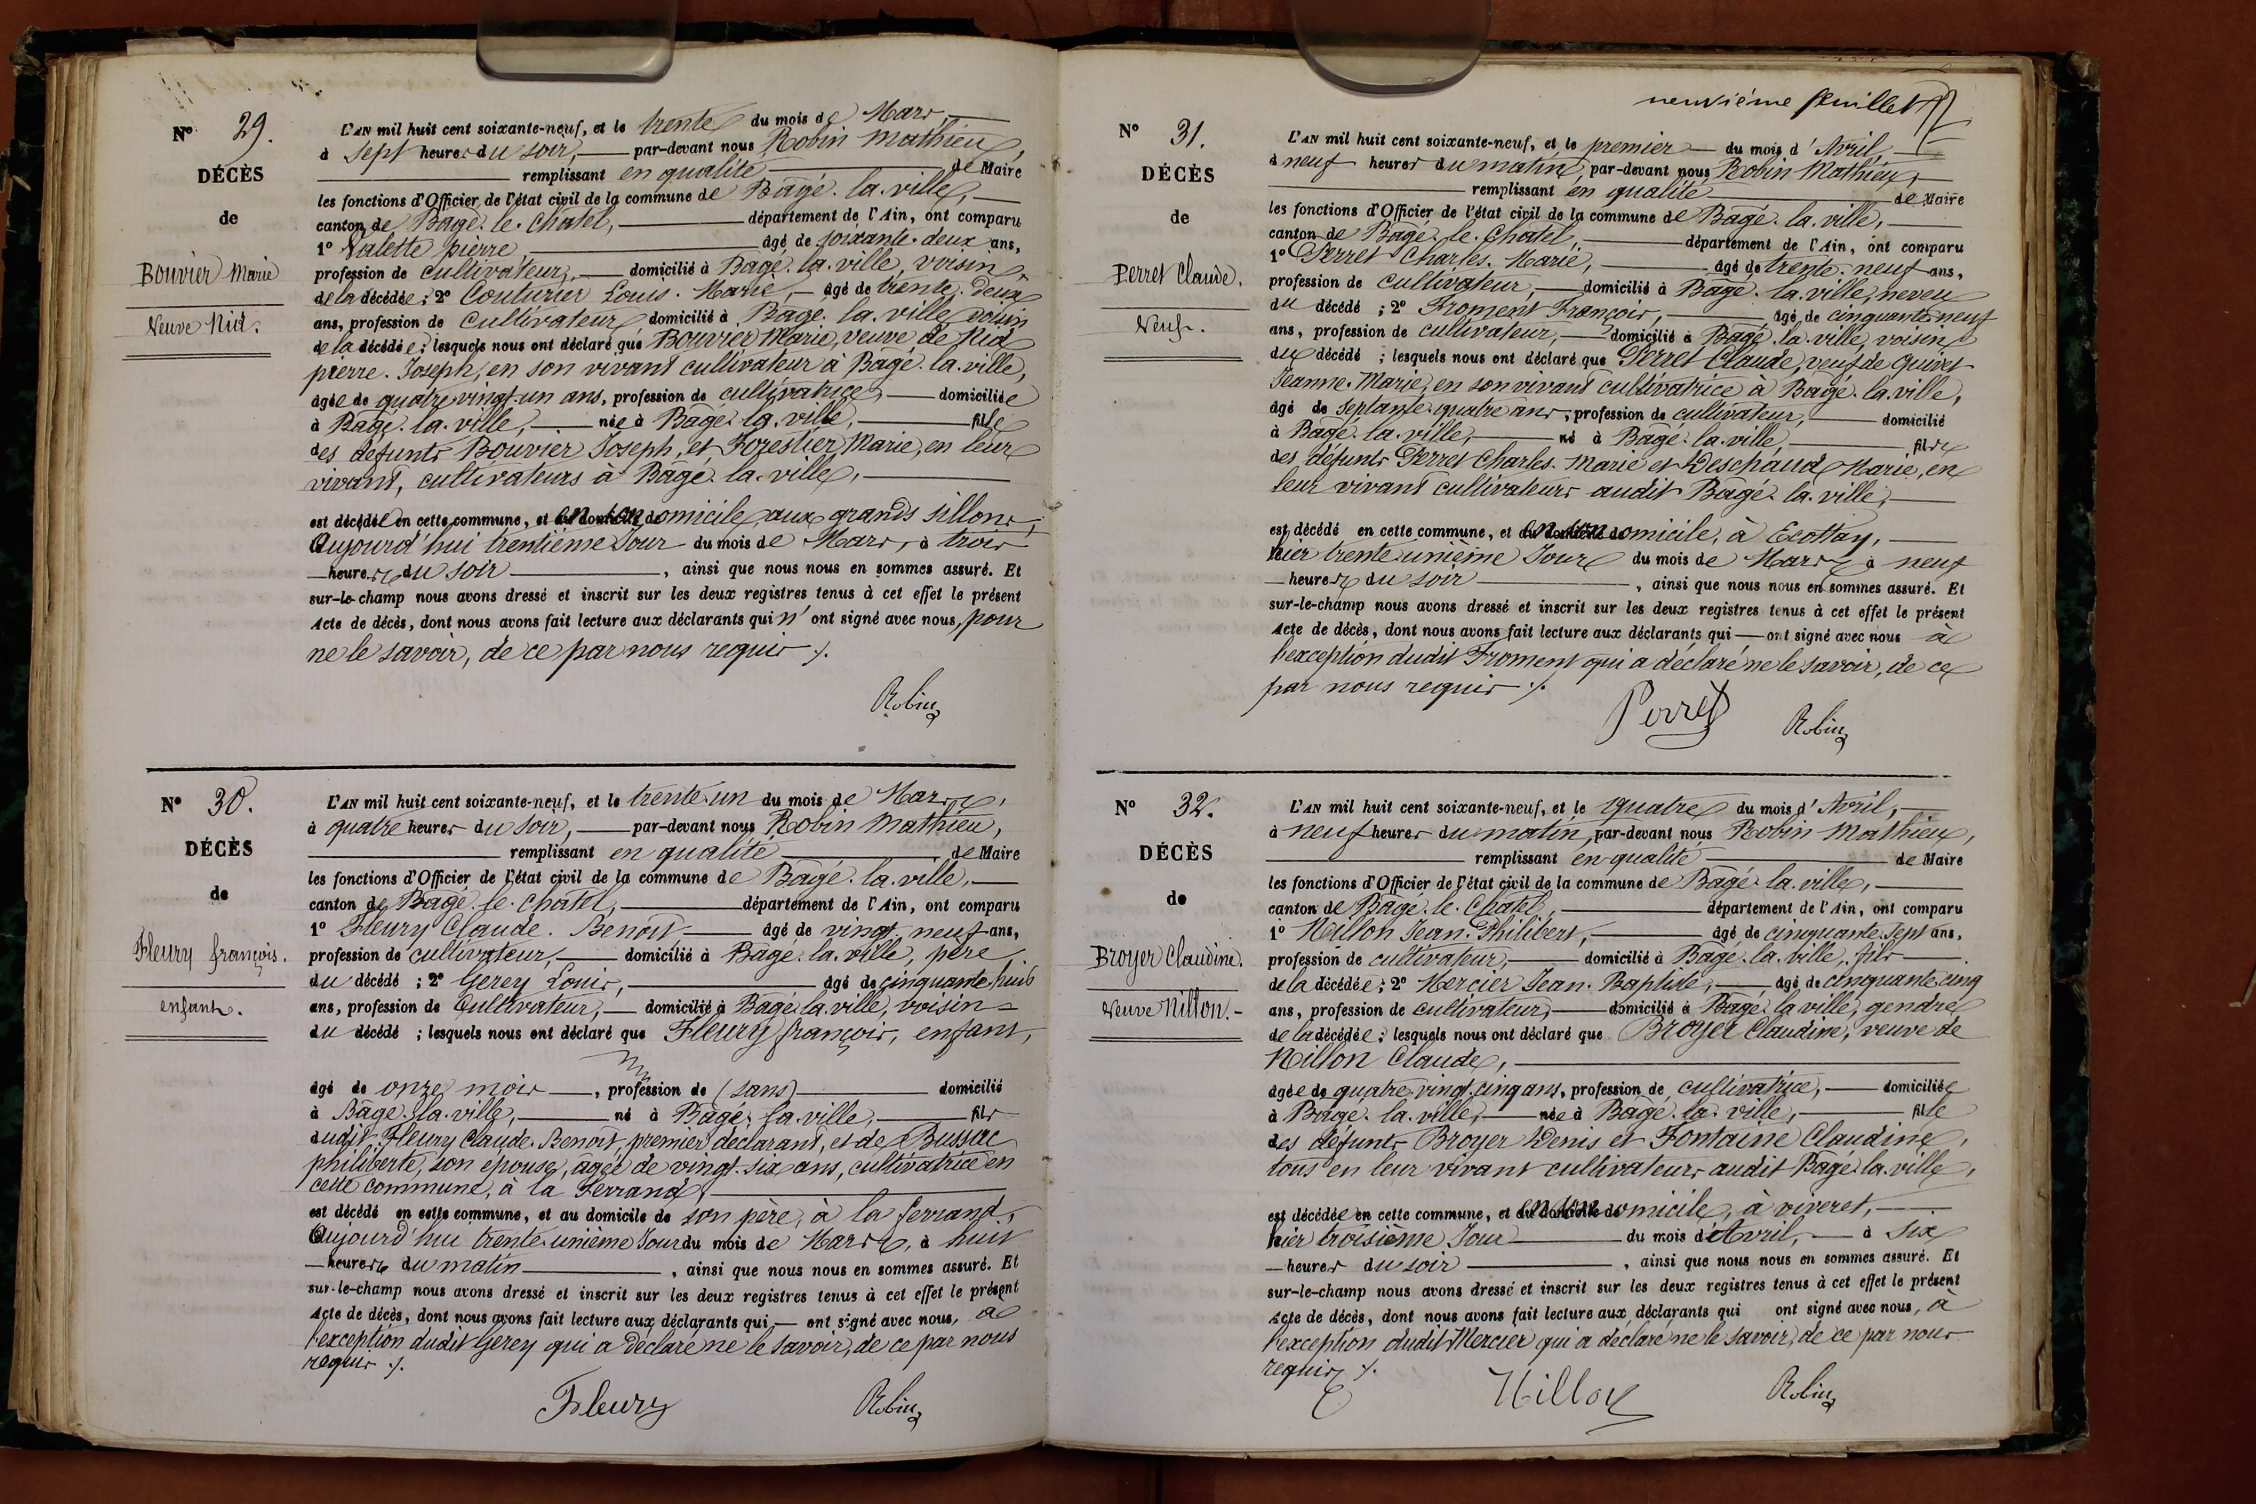 N° 29.
DÉCÈS
de
Bouvier Marie
Veuve Nid.
L'AN mil huit cent soixante-neuf, et le trente du mois de Mars,
à sept heures du soir, par-devant nous Robin Mathieu,
remplissant en qualité de Maire
les fonctions d'Officier de l'état civil de la commune de Bâgé-la-ville,
canton de Bâgé-le-Chatel, département de l'Ain, ont comparu
1° Valette pierre, âgé de soixante-deux ans,
profession de cultivateur, domicilié à Bâgé-la-ville, voisin
de la décédée; 2° Couturier Louis-Marie, âgé de trente-deux
ans, profession de cultivateur domicilié à Bâgé-la-ville voisin
de la décédée; lesquels nous ont déclaré que Bouvier Marie, veuve de Nid
pierre-Joseph, en son vivant cultivateur à Bâgé-la-ville,
âgée de quatre-vingt-un ans, profession de cultivatrice, domiciliée
à Bâgé-la-ville, née à Bâgé-la-ville, fille
des défunts Bouvier Joseph, et Forestier Marie, en leur
vivant, cultivateurs à Bâgé-la-ville,
est décédée en cette commune, et en son domicile aux grands sillons,
Aujourd'hui trentième Jour du mois de Mars, à trois
heures du soir, ainsi que nous nous en sommes assuré. Et
sur-le-champ nous avons dressé et inscrit sur les deux registres tenus à cet effet le présent
Acte de décès, dont nous avons fait lecture aux déclarants qui n'ont signé avec nous, pour
ne le savoir, de ce par nous requis ./.
Robin
N° 30.
DÉCÈS
de
Fleury françois.
enfant.
L'AN mil huit cent soixante-neuf, et le trente-un du mois de Mars,
à quatre heures du soir, par-devant nous Robin Mathieu,
remplissant en qualité de Maire
les fonctions d'Officier de l'état civil de la commune de Bâgé-la-ville,
canton de Bâgé-le-Chatel, département de l'Ain, ont comparu
1° Fleury Claude-Benoit âgé de vingt-neuf ans,
profession de cultivateur, domicilié à Bâgé-la-ville, père
du décédé; 2° Gerey Louis, âgé de cinquante-huit
ans, profession de Cultivateur, domicilié à Bâgé-la-ville, voisin
du décédé; lesquels nous ont déclaré que Fleury françois, enfant,
âgé de onze mois, profession de (sans) domicilié
à Bâgé-la-ville, né à Bâgé-la-ville, fils
dudit Fleury Claude-Benoit, premier déclarant, et de Bussac
philiberte, son épouse, âgée de vingt-six ans, cultivatrice en
cette commune, à la Ferrand,
est décédé en cette commune, et au domicile de son père, à la ferrand,
Aujourd'hui trente-unième Jour du mois de Mars, à huit
heures du matin, ainsi que nous nous en sommes assuré. Et
sur-le-champ nous avons dressé et inscrit sur les deux registres tenus à cet effet le présent
Acte de décès, dont nous avons fait lecture aux déclarants qui ont signé avec nous, à
l'exception dudit Gerey qui a déclaré ne le savoir, de ce par nous
requis ./.
Fleury Robin
neuvième feuillet
N° 31.
DÉCÈS
de
Perret Claude.
Veuf.
L'AN mil huit cent soixante-neuf, et le premier du mois d'Avril
à neuf heures du matin, par-devant nous Robin Mathieu,
remplissant en qualité de Maire
les fonctions d'Officier de l'état civil de la commune de Bâgé-la-ville,
canton de Bâgé-le-Chatel, département de l'Ain, ont comparu
1° Perret Charles-Marie, âgé de trente-neuf ans,
profession de cultivateur, domicilié à Bâgé-la-ville, neveu
du décédé; 2° Froment François, âgé de cinquante-neuf
ans, profession de cultivateur, domicilié à Bâgé-la-ville, voisin
du décédé; lesquels nous ont déclaré que Perret Claude, veuf de Quivet
Jeanne-Marie, en son vivant cultivatrice à Bâgé-la-ville,
âgé de septante-quatre ans, profession de cultivateur, domicilié
à Bâgé-la-ville, né à Bâgé-la-ville, fils
des défunts Perret Charles-Marie et Deschaud Marie, en
leur vivant cultivateurs audit Bâgé-la-ville,
est décédé en cette commune, et en son domicile, à Ecottay,
hier trente-unième Jour du mois de Mars à neuf
heures du soir, ainsi que nous nous en sommes assuré. Et
sur-le-champ nous avons dressé et inscrit sur les deux registres tenus à cet effet le présent
Acte de décès, dont nous avons fait lecture aux déclarants qui ont signé avec nous à
l'exception dudit Froment qui a déclaré ne le savoir, de ce
par nous requis ./.
Perret Robin
N° 32.
DÉCÈS
de
Broyer Claudine.
Veuve Nillon.
L'AN mil huit cent soixante-neuf, et le quatre du mois d'Avril,
à neuf heures du matin, par-devant nous Robin Mathieu,
remplissant en qualité de Maire
les fonctions d'Officier de l'état civil de la commune de Bâgé-la-ville,
canton de Bâgé-le-Chatel, département de l'Ain, ont comparu
1° Nillon Jean-Philibert, âgé de cinquante-sept ans,
profession de cultivateur, domicilié à Bâgé-la-ville, fils
de la décédée; 2° Mercier Jean-Baptiste, âgé de cinquante-cinq
ans, profession de cultivateur, domicilié à Bâgé-la-ville, gendre
de la décédée; lesquels nous ont déclaré que Broyer Claudine, veuve de
Nillon Claude,
âgée de quatre-vingt-cinq ans, profession de cultivatrice, domiciliée
à Bâgé-la-ville, née à Bâgé-la-ville, fille
des défunts Broyer Denis et Fontaine Claudine,
tous en leur vivant cultivateurs audit Bâgé-la-ville,
est décédée en cette commune, et en son domicile, à viveret,
hier troisième Jour du mois d'Avril, à six
heures du soir, ainsi que nous nous en sommes assuré. Et
sur-le-champ nous avons dressé et inscrit sur les deux registres tenus à cet effet le présent
Acte de décès, dont nous avons fait lecture aux déclarants qui ont signé avec nous, à
l'exception dudit Mercier qui a déclaré ne le savoir, de ce par nous
requis ./.
Nillon Robin